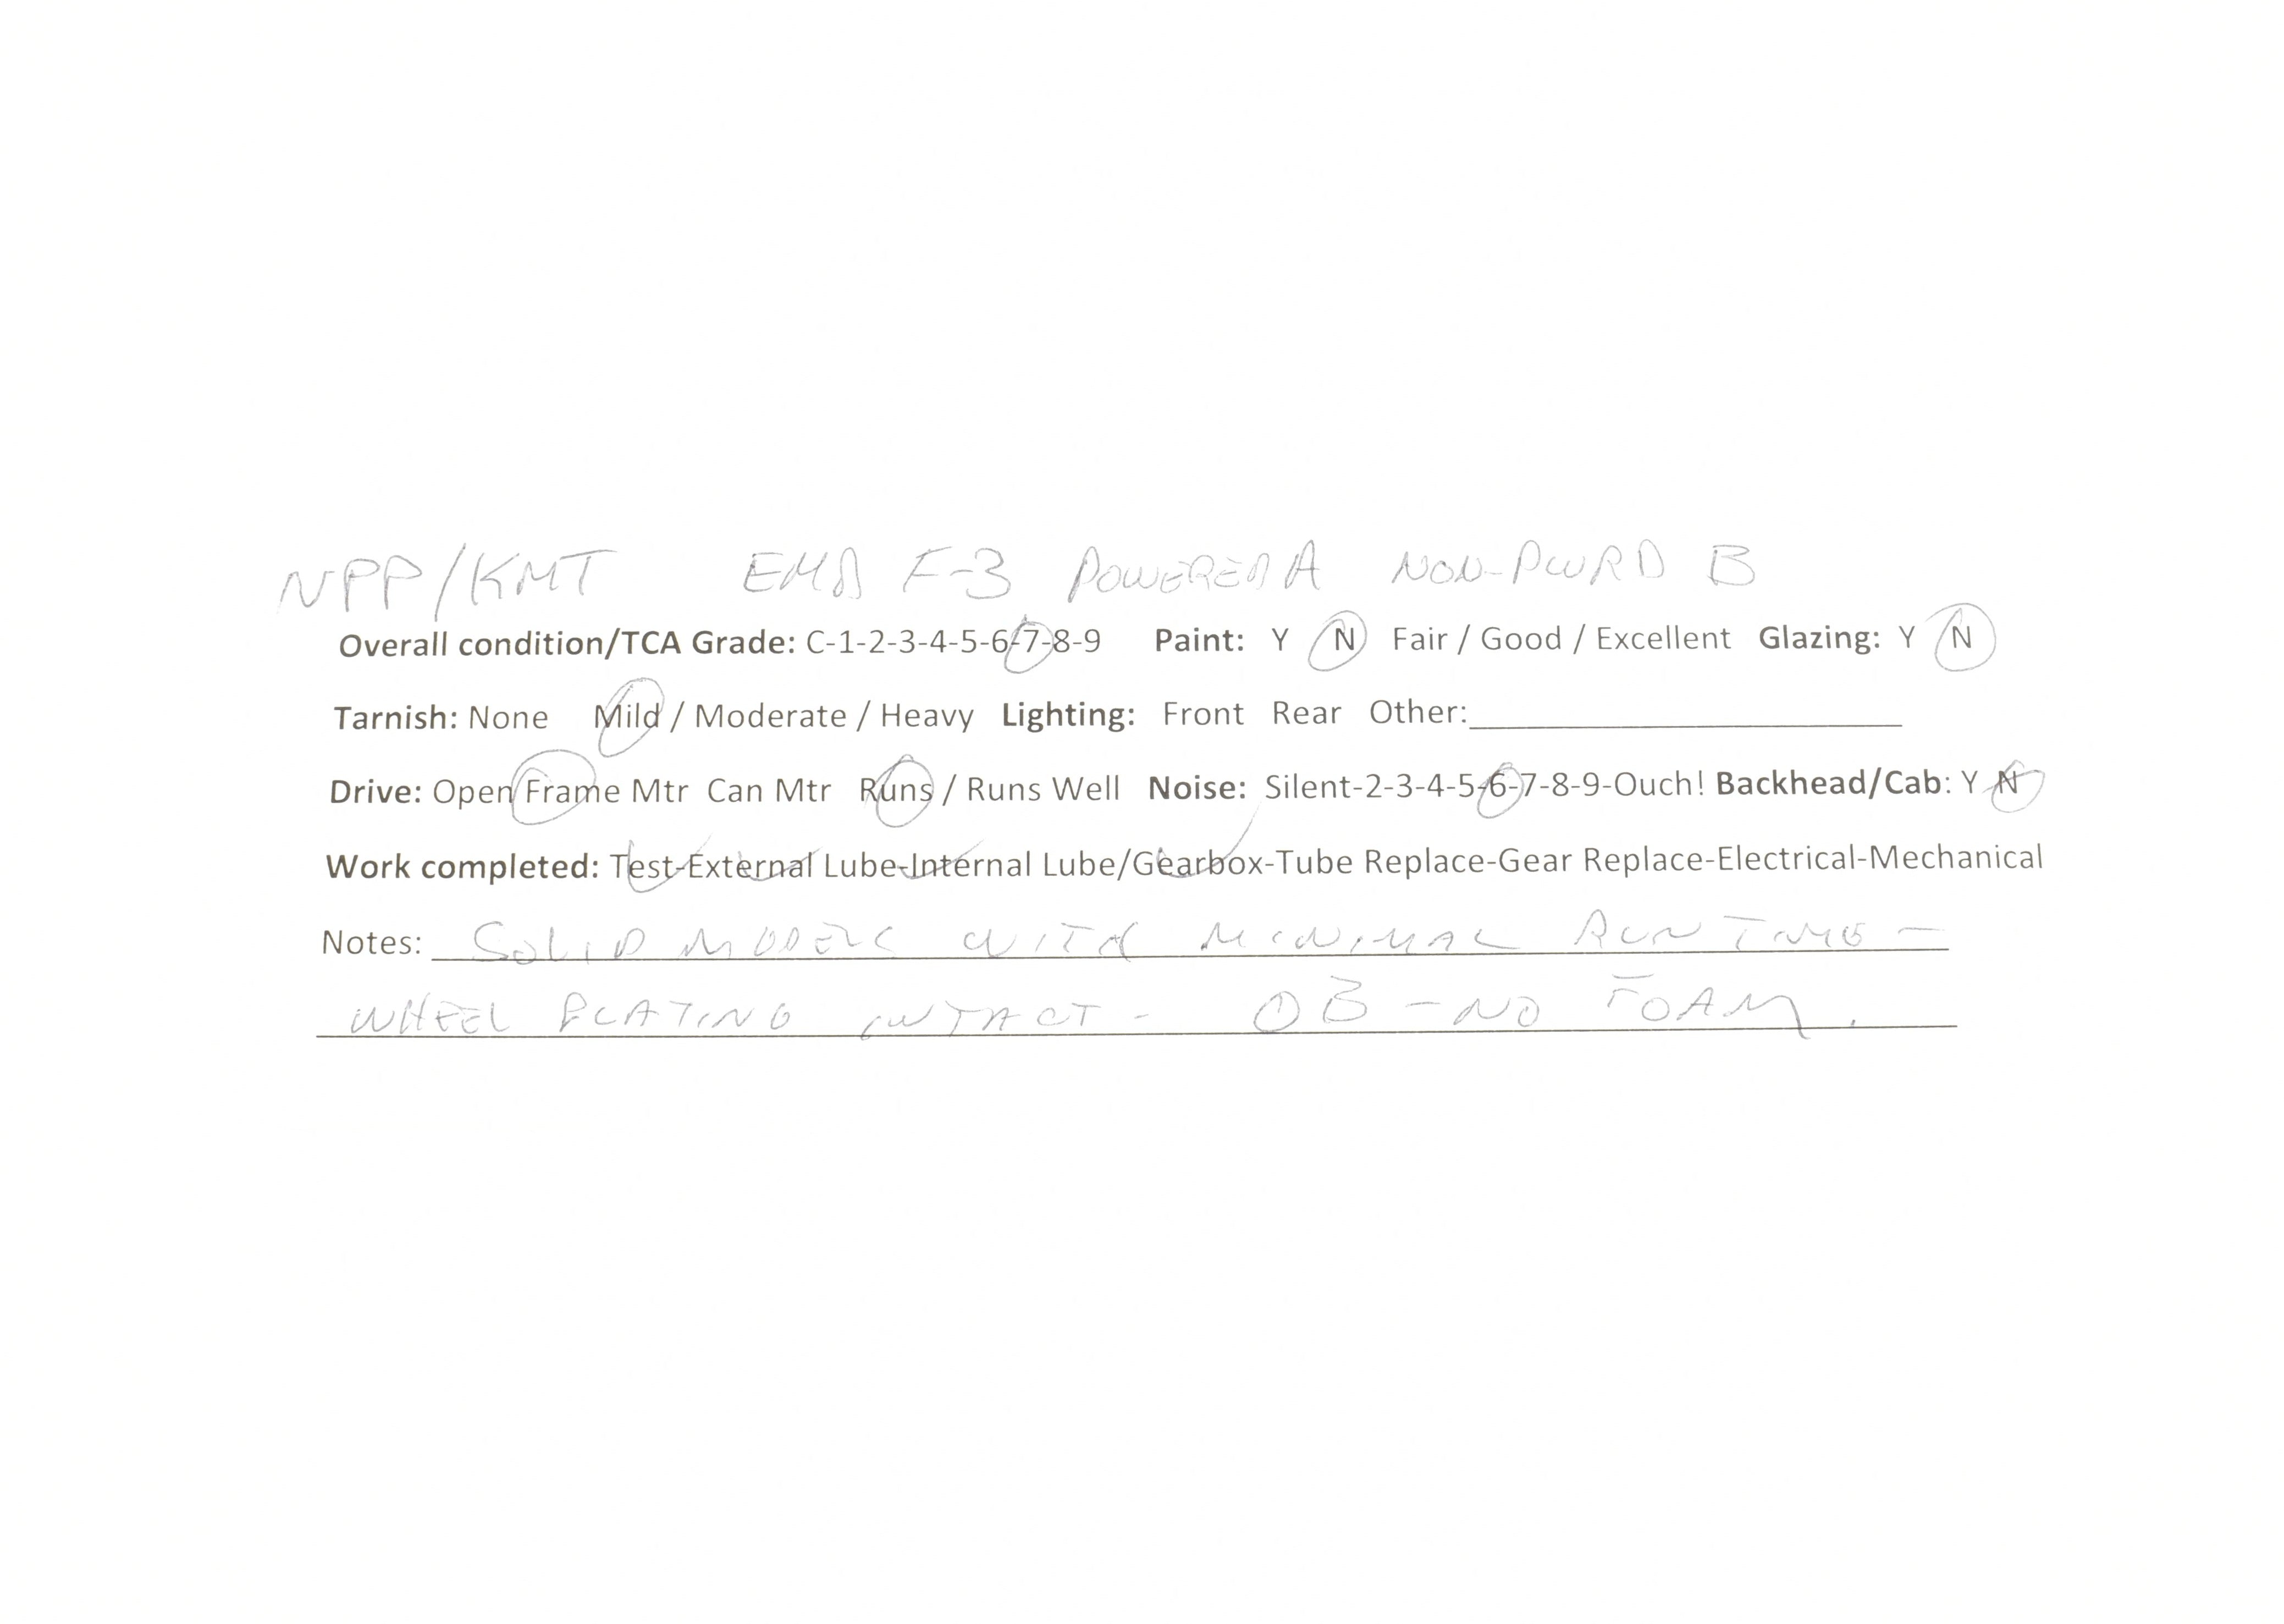 NPP/KMT EMD F-3 POWERED A NON-PWRD B
Overall condition/TCA Grade: C-1-2-3-4-5-6-7-8-9 Paint: Y N Fair / Good / Excellent Glazing: Y N
Tarnish: None Mild / Moderate / Heavy Lighting: Front Rear Other:
Drive: Open Frame Mtr Can Mtr Runs / Runs Well Noise: Silent-2-3-4-5-6-7-8-9-Ouch! Backhead/Cab: Y N
Work completed: Test-External Lube-Internal Lube/Gearbox-Tube Replace-Gear Replace-Electrical-Mechanical
Notes: SOLID MODELS WITH MINIMAL RUN TIME -
WHEEL PLATING INTACT - OB - NO FOAM.